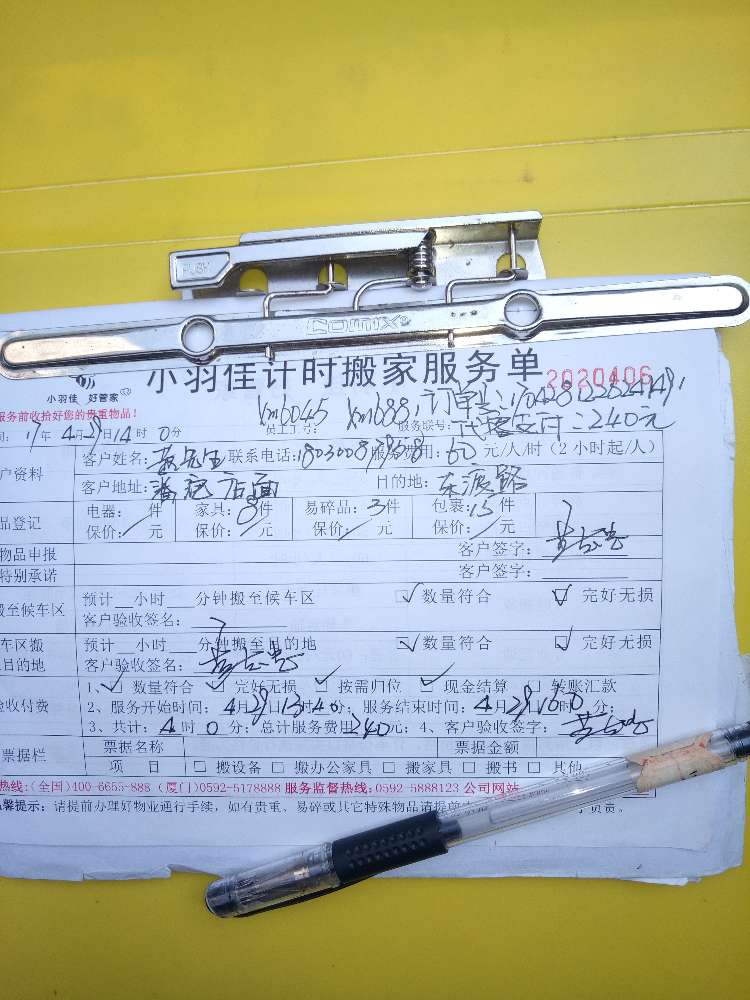 PUSH
COMIX
小羽佳 好管家
小羽佳计时搬家服务单
2020406
服务前收拾好您的贵重物品！
xm6045 xm688 订单号:
17年4月29日14时0分 员工工号: 服务联号: 代客支付:240元
客户姓名: 联系电话: 服务费用:60元/人/时(2小时起/人)
户资料
客户地址: 店面 目的地:东渡路
电器: 件 家具:8件 易碎品:3件 包裹:15件
品登记
保价:/元 保价:/元 保价:/元 保价:/元
物品申报 客户签字:
特别承诺 客户签字:
搬至候车区 预计__小时__分钟搬至候车区 ☑数量符合 ☑完好无损
客户验收签名:
车区搬 预计__小时__分钟搬至目的地 ☑数量符合 ☑完好无损
目的地 客户验收签名:
1、☑数量符合 ☑完好无损 ☑按需归位 ☑现金结算 □转账汇款
验收付费 2、服务开始时间: 服务结束时间:
3、共计:4时0分; 总计服务费用240元; 4、客户验收签字:
票据栏 票据名称 票据金额
项 目 □搬设备 □搬办公家具 □搬家具 □搬书 □其他
热线:(全国)400-6655-888 (厦门)0592-5178888 服务监督热线:0592-5888123 公司网站
温馨提示: 请提前办理好物业通行手续，如有贵重、易碎或其它特殊物品请提前 负责。